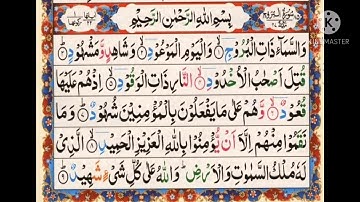 بِسْمِ اللهِ الرَّحْمٰنِ الرَّحِيْمِ
وَالسَّمَآءِ ذَاتِ الْبُرُوْجِ ۙ وَالْيَوْمِ الْمَوْعُوْدِ ۙ وَشَاهِدٍ وَّمَشْهُوْدٍ ؕ
قُتِلَ اَصْحٰبُ الْاُخْدُوْدِ ۙ النَّارِ ذَاتِ الْوَقُوْدِ ۙ اِذْ هُمْ عَلَيْهَا
قُعُوْدٌ ۙ وَّهُمْ عَلٰى مَا يَفْعَلُوْنَ بِالْمُؤْمِنِيْنَ شُهُوْدٌ ؕ وَمَا
نَقَمُوْا مِنْهُمْ اِلَّاۤ اَنْ يُّؤْمِنُوْا بِاللهِ الْعَزِيْزِ الْحَمِيْدِ ۙ الَّذِيْ
لَهٗ مُلْكُ السَّمٰوٰتِ وَالْاَرْضِ ؕ وَاللهُ عَلٰى كُلِّ شَيْءٍ شَهِيْدٌ ؕ
KINEMASTER